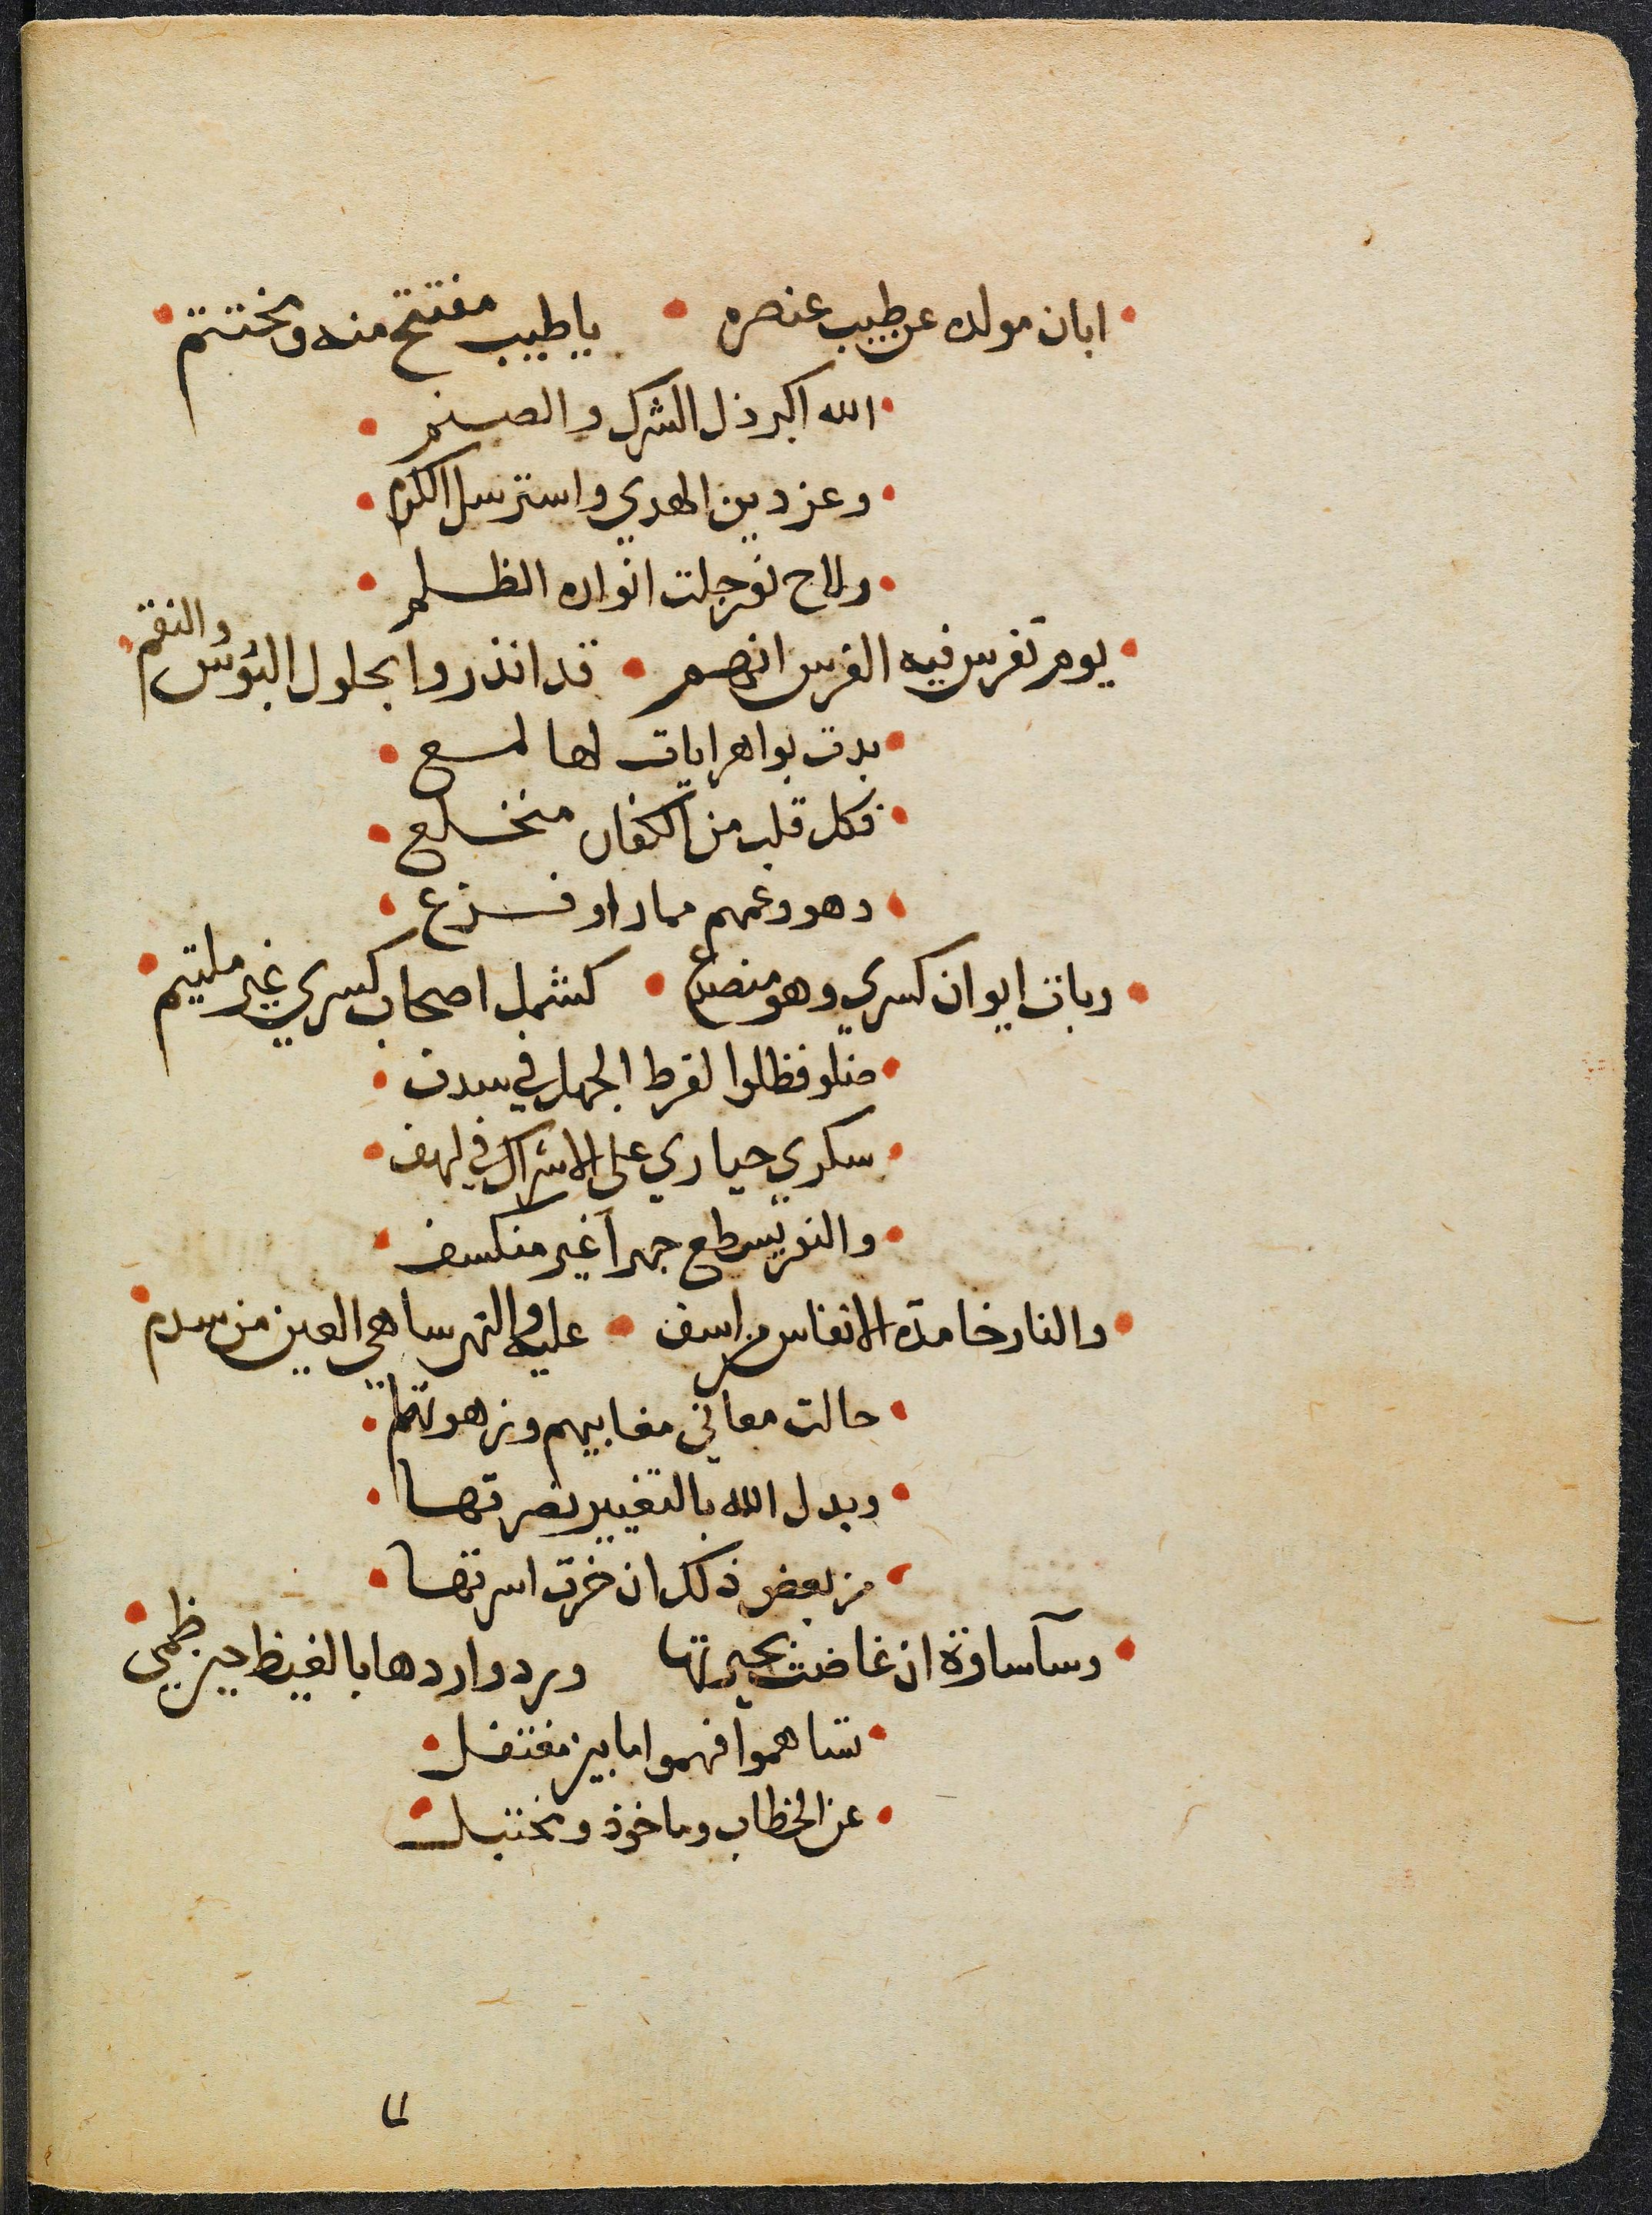 ابان مولده عن طيب عنصره يا طيب مفتتح منه ومختتم
الله اكبر ذل الشرك والصنم
وعز دين الهدي واسترسل الكرم
ولاح نور جلت انواره الظلم
يوم تفرس فيه الفرس انهم قد انذروا بحلول البؤس والنقم
بدت بواهر ايات لها لمع
فكل قلب من الكفار منخلع
دهو وعمهم مما راو فزع
وبات ايوان كسري وهو منصدع كشمل اصحاب كسري غير ملتيم
ضلو فظلوا لفرط الجهل في سدف
سكري حياري على الاشراك في لهف
والنور يسطع جهرا غير منكسف
والنار خامدة الانفاس من اسف عليه والنهر ساهي العين من سدم
حالت معاني مغابيهم وزهوتها
وبدل الله بالتغيير نضرتها
من بعض ذلك ان خرت اسرتها
وسآ ساوة ان غاضت بحيرتها ورد واردها بالغيظ حين ظمي
شاهموا فهموا ما بين مفتفل
عن الخطاب وماخوذ ومختبل
لما